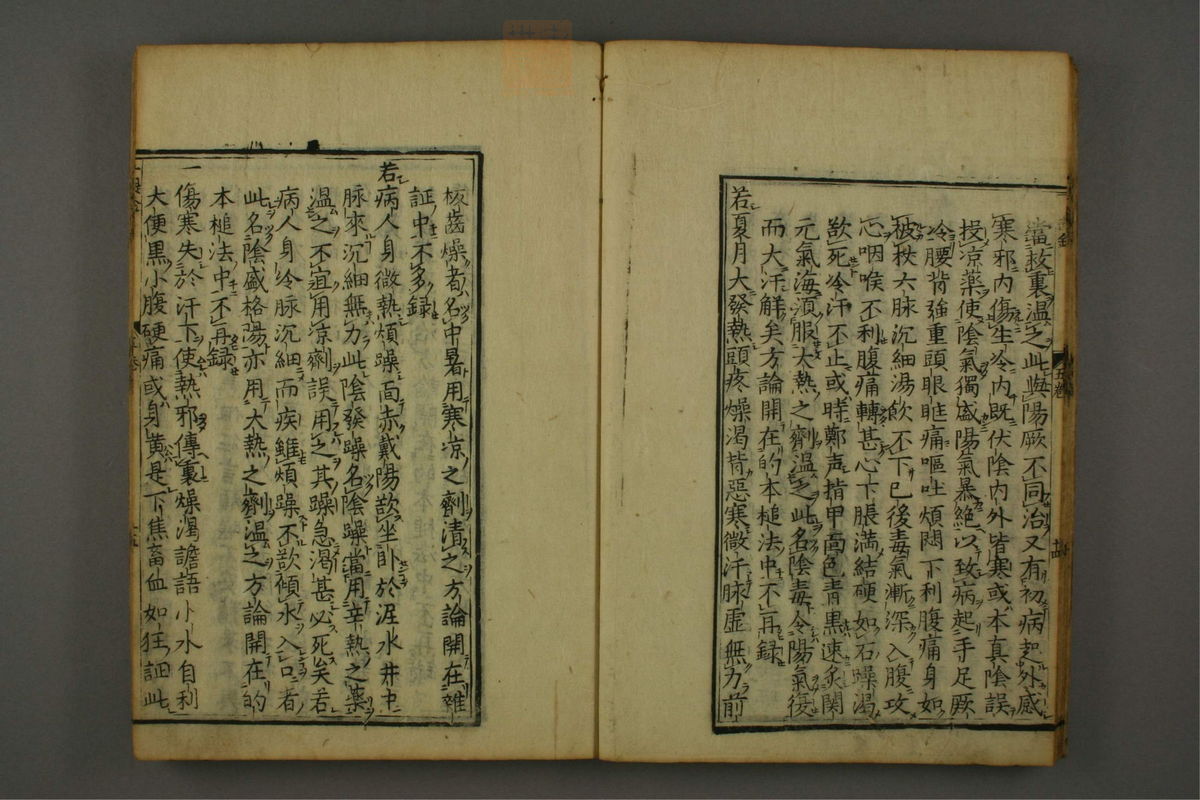 當救裏温之此與陽厥不同治又有初病起外感
寒邪内傷生冷内既伏陰内外皆寒或本真陰誤
投凉藥使陰氣獨盛陽氣暴絶以致病起手足厥
冷腰背強重頭眼眶痛嘔吐煩悶下利腹痛身如
被杖六脉沉細湯飲不下已後毒氣漸深入腹攻
心咽喉不利腹痛轉甚心下脹満結硬如石躁渇
欲死冷汗不止或時鄭声指甲面色青黒速灸関
元氣海須服大熱之劑温之此名陰毒令陽氣復
而大汗觧矣方論開在的本槌法中不再録
若夏月大發熱頭疼燥渇背惡寒微汗脉虚無力前
板齒燥者名中暑用寒凉之劑清之方論開在雜
証中不多録
若病人身微熱煩躁面赤戴陽欲坐卧於泥水井中
脉來沉細無力此陰發躁名陰躁當用辛熱之藥
温之不宜用凉劑誤用之其躁急渇甚必死矣若
病人身冷脉沉細而疾雖煩躁不欲水入口者
此名陰盛格陽亦用大熱之劑温之方論開在的
本槌法中不再録
一
傷寒失於汗下使熱邪傳裏燥渇譫語小水自利
大便黒小腹硬痛或身黄是下焦畜血如狂証此